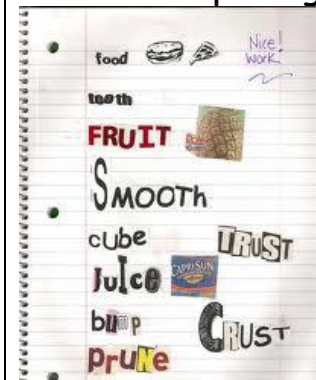 food
Nice!
Work!
tooth
FRUIT
SMOOTh
cube
TRUST
JuIce
CAPRI SUN
bump
CRUST
pruNe